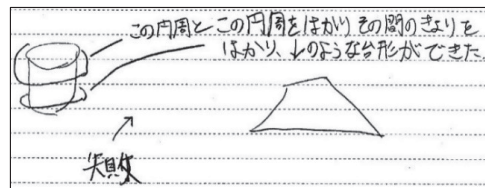 この円周とこの円周をはかりその間のきょりを
はかり、↓のような台形ができた。
実具体